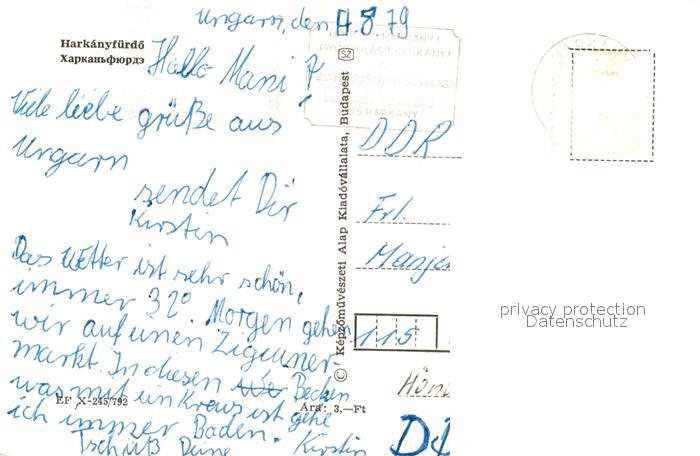 Ungarn, den 4.8.79
Harkányfürdő
Харканьфюрдэ
Hallo Mani!
Viele liebe grüße aus
Ungarn
sendet Dir
Kirstin
Das Wetter ist sehr schön,
immer 32° Morgen gehen
wir auf einen Zigeuner-
markt. In diesen Becken
was mit ein Kreuz ist gehe
ich immer Baden.
Tschüß Deine Kirstin
EF X-245/792
Ára: 3,—Ft
© Képzőművészeti Alap Kiadóvállalata, Budapest
SZ
HARKÁNY
DDR
Frl.
Manja
115
privacy protection
Datenschutz